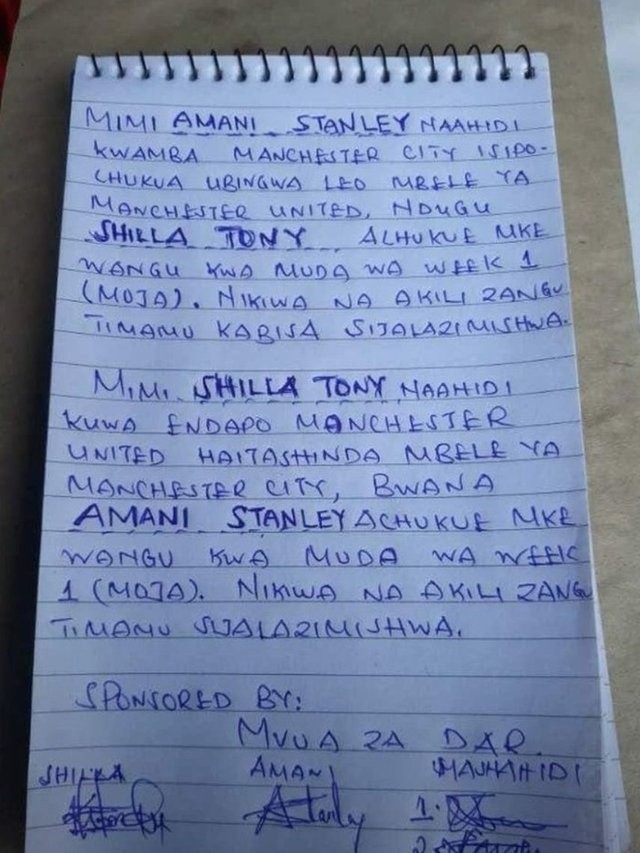 MIMI AMANI STANLEY NAAHIDI
KWAMBA MANCHESTER CITY ISIPO-
CHUKUA UBINGWA LEO MBELE YA
MANCHESTER UNITED, NDUGU
SHILLA TONY ACHUKUE MKE
WANGU KWA MUDA WA WEEK 1
(MOJA). NIKIWA NA AKILI ZANGU
TIMAMU KABISA SIJALAZIMISHWA.
MIMI SHILLA TONY NAAHIDI
KUWA ENDAPO MANCHESTER
UNITED HAITASHINDA MBELE YA
MANCHESTER CITY, BWANA
AMANI STANLEY ACHUKUE MKE
WANGU KWA MUDA WA WEEK
1 (MOJA). NIKIWA NA AKILI ZANGU
TIMAMU SIJALAZIMISHWA.
SPONSORED BY:
MVUA ZA DAR.
SHILLA AMANI MASHAHIDI
Stanley 1.
2.